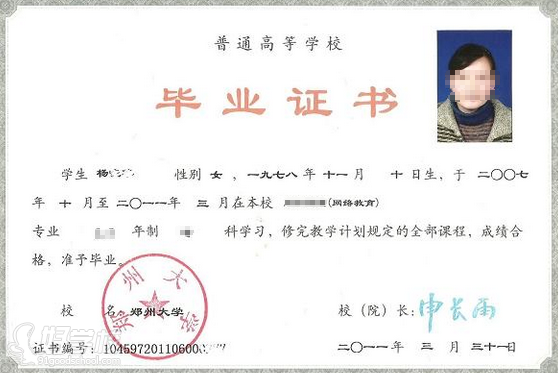 普通高等学校
毕业证书
学生 杨 性别 女 ，一九七八 年 十一 月 十 日生，于 二〇〇七
年 十 月至 二〇一一 年 三 月在本校 (网络教育)
专业 年制 科学习，修完教学计划规定的全部课程，成绩合
格，准予毕业。
郑州大学
校 名：郑州大学 校（院）长：申长雨
证书编号：104597201106000 二〇一一年 三 月 三十一日
好学校